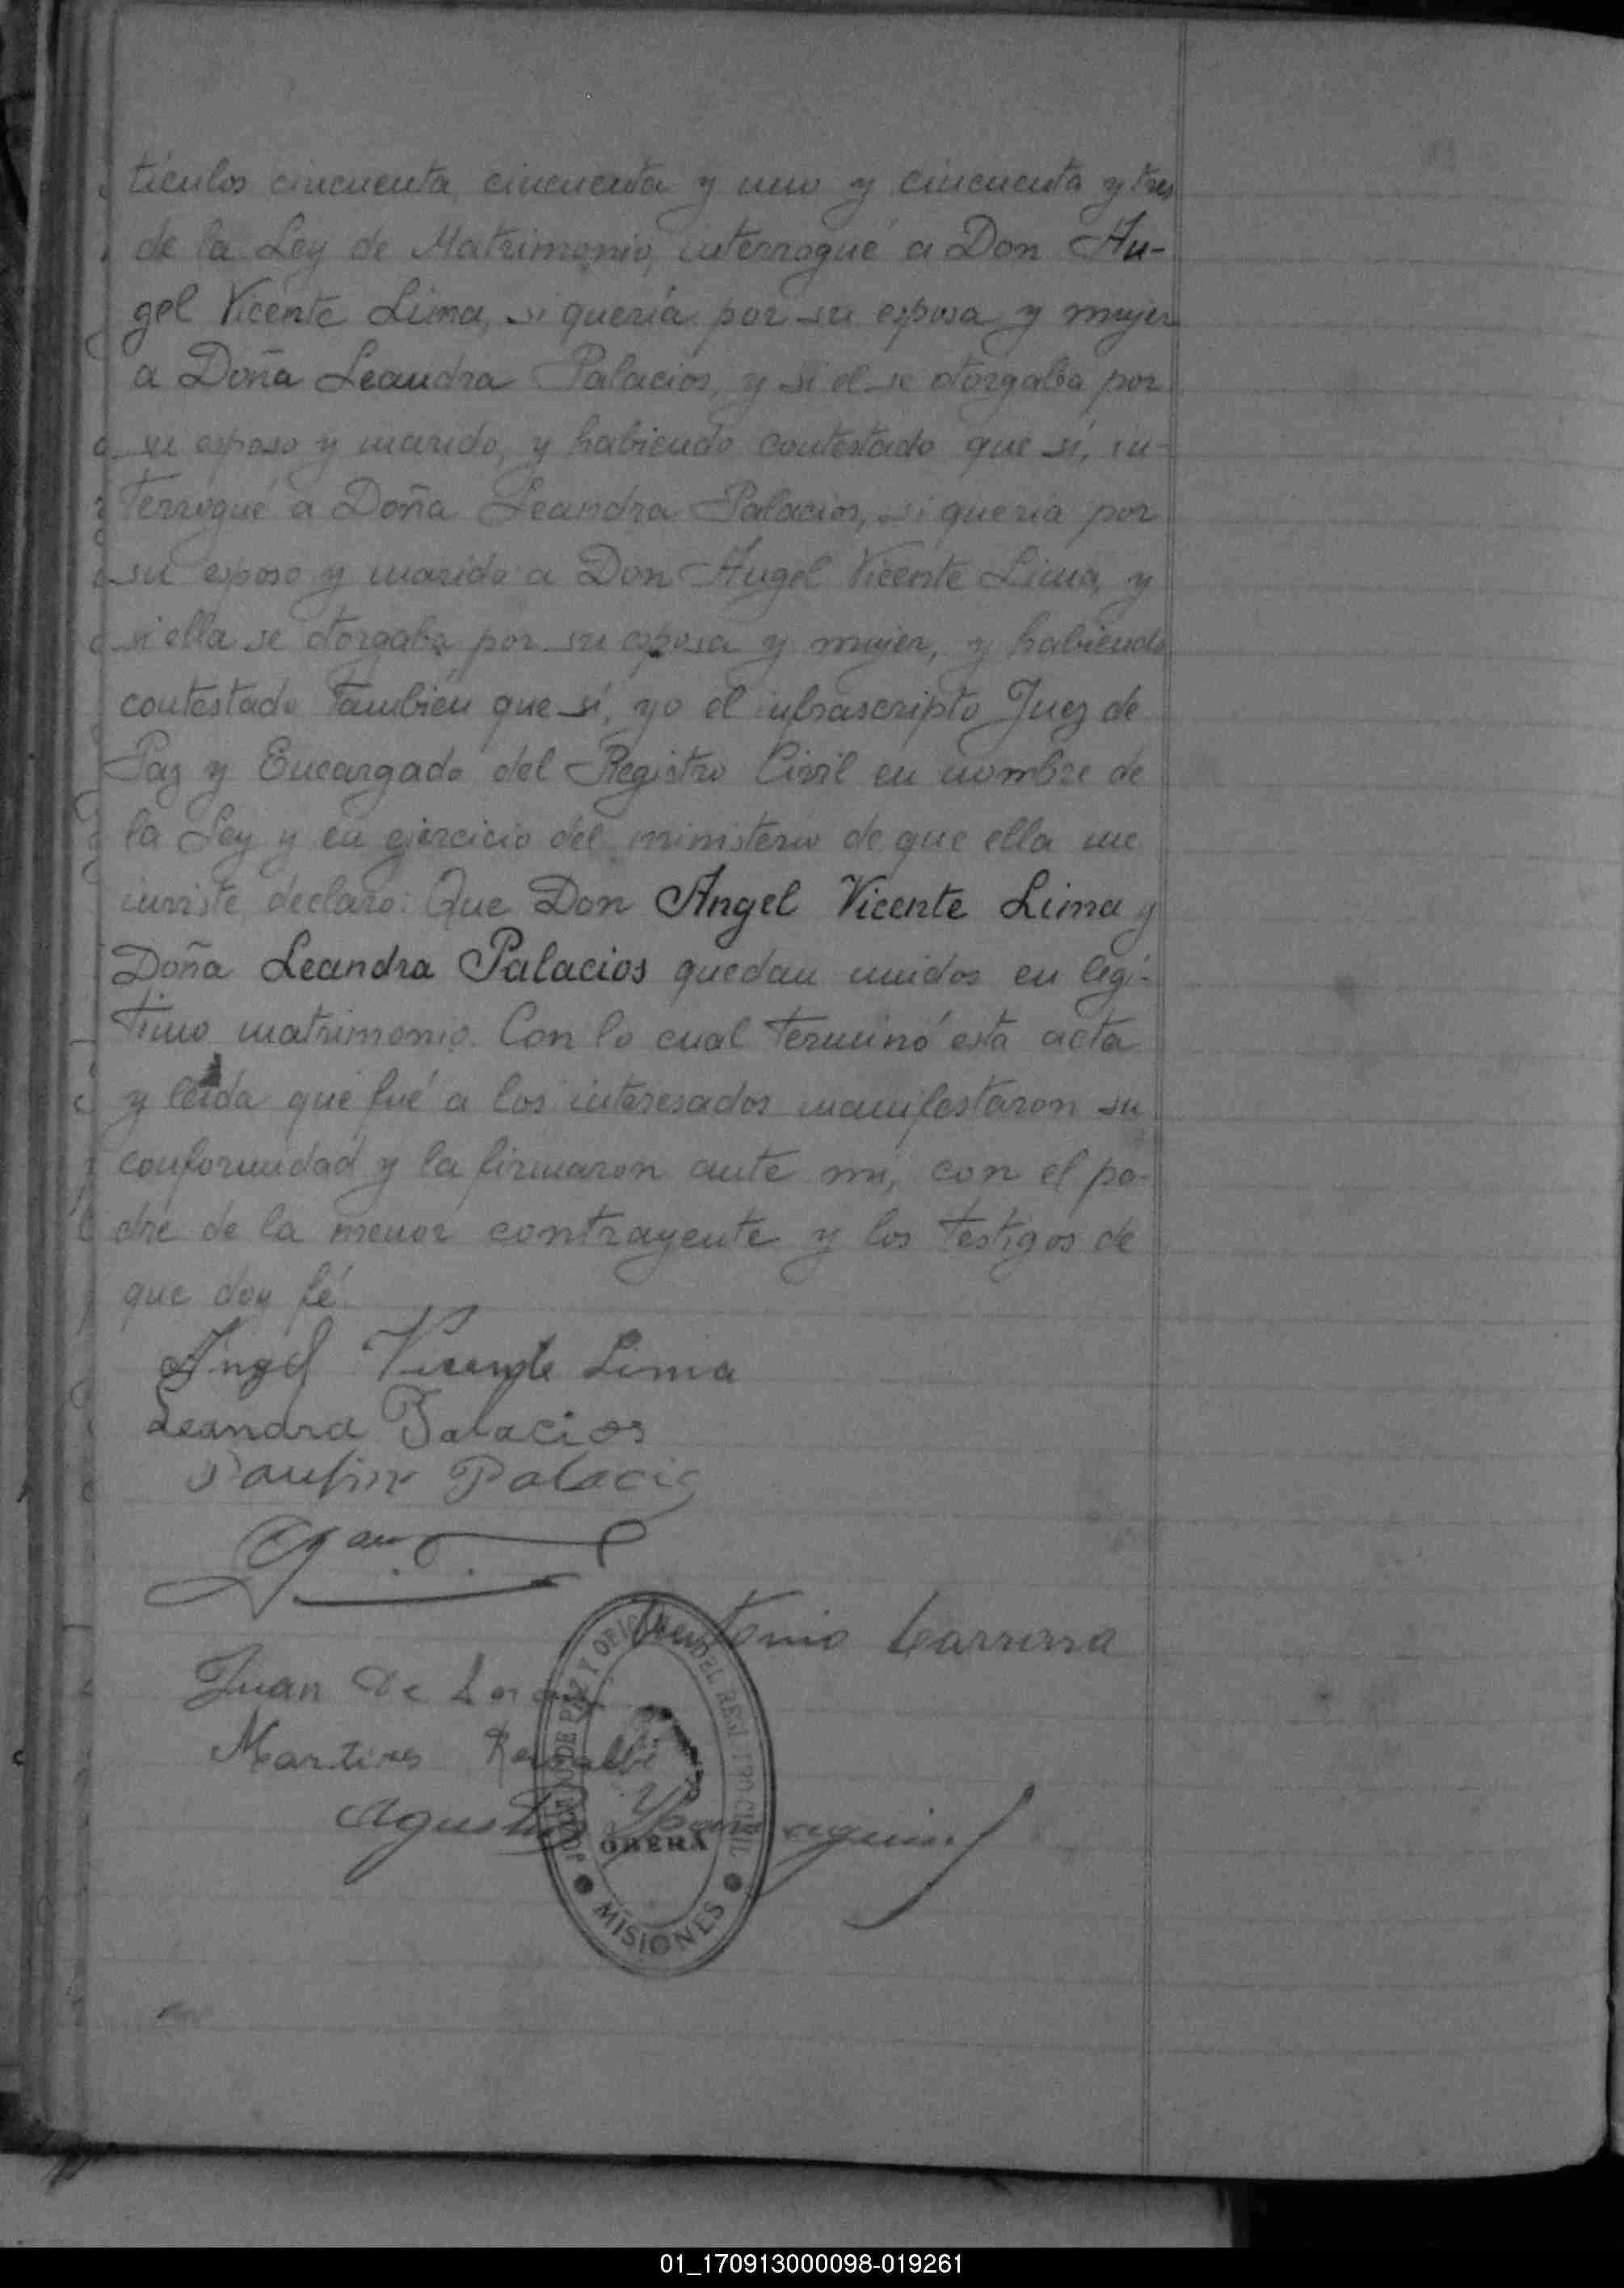 tículos cincuenta, cincuenta y uno y cincuenta y tres
de la Ley de Matrimonio, interrogué a Don An-
gel Vicente Lima, si quería por su esposa y mujer
a Doña Leandra Palacios, y si el se otorgaba por
su esposo y marido, y habiendo contestado que sí, in-
terrogué a Doña Leandra Palacios, si queria por
su esposo y marido a Don Angel Vicente Lima, y
si ella se otorgaba por su esposa y mujer, y habiendo
contestado también que sí, yo el infrascripto Juez de
Paz y Encargado del Registro Civil en nombre de
la Ley y en ejercicio del ministerio de que ella me
inviste declaro: Que Don Angel Vicente Lima y
Doña Leandra Palacios quedan unidos en legí-
timo matrimonio. Con lo cual terminó esta acta
y leída que fué a los interesados manifestaron su
conformidad y la firmaron ante mí, con el pa-
dre de la menor contrayente y los testigos de
que doy fé.
Angel Vicente Lima
Leandra Palacios
Palacio
Antonio Carrera
Juan De
Martires
Agustin
JUZGADO DE PAZ Y OFICINA DEL REGISTRO CIVIL
OBERÁ
MISIONES
01_170913000098-019261